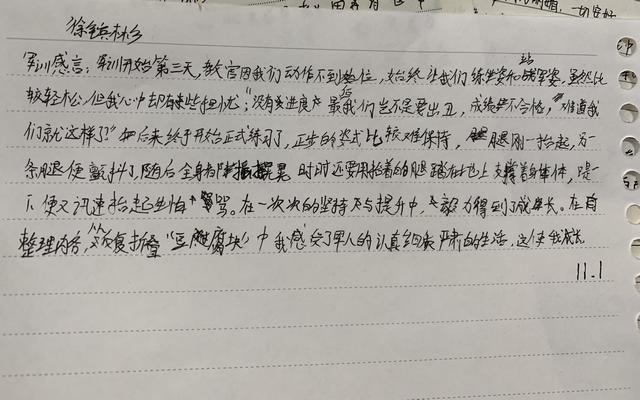 军训感言：军训开始第三天，教官因我们动作不到位，始终让我们练坐姿和站军姿，虽然比
较轻松，但我心中却有些担忧：“没有进度，最后我们岂不是要出丑，成绩不合格，难道我
们就这样了？”但后来终于开始正式练习了，正步的姿式比较难保持，腿刚一抬起，另一
条腿便颤抖了，随后全身都摇晃，时时还要用抬着的腿踏在地上支撑着身体，踩一
下便又迅速抬起生怕挨骂。在一次次的坚持与提升中，毅力得到了成长。在
整理内务，反复折叠“豆腐块”中我感受了军人的认真细致严肃的生活，这使我成长
11.1